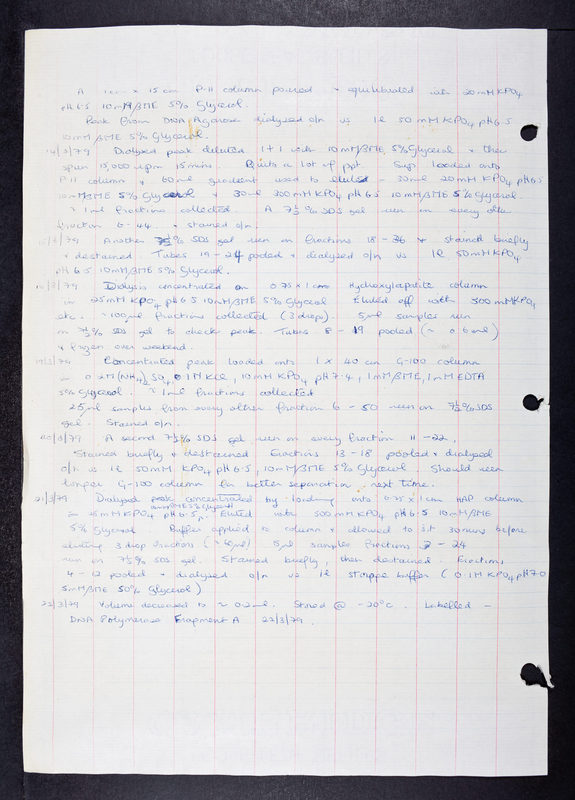 A 1cm x 15cm P-11 column poured + equilibrated with 20mM KPO4
pH 6.5 10mM βME 5% Glycerol.
Peak from DNA Agarose dialysed o/n vs 1l 50mM KPO4 pH 6.5
10mM βME 5% Glycerol.
14/3/79 Dialysed peak diluted 1+1 with 10mM βME, 5% Glycerol + then
spun 15,000 rpm 15 mins. Quite a lot of ppt. Sup. loaded onto
P-11 column + 60ml gradient used to elute - 30ml 20mM KPO4 pH 6.5
10mM βME 5% Glycerol + 30ml 300mM KPO4 pH 6.5 10mM βME 5% Glycerol.
~ 1ml fractions collected. A 7½% SDS gel run on every other
fraction 6 - 44 + stained o/n.
15/3/79 Another 7½% SDS gel run on fractions 18 - 36 + stained briefly
+ destained. Tubes 19 - 24 pooled + dialysed o/n vs 1l 50mM KPO4
pH 6.5 10mM βME 5% Glycerol.
16/3/79 Dialysis concentrated on 0.75 x 1cm Hydroxylapatite column
in 25mM KPO4 pH 6.5 10mM βME 5% Glycerol Eluted off with 500mM KPO4
etc. ~100µl fractions collected (3 drops). 5µl samples run
on 7½% SDS gel to check peak. Tubes 8 - 19 pooled (~ 0.6ml)
+ frozen over weekend.
19/3/79 Concentrated peak loaded onto 1 x 40cm G-100 column
in 0.2M (NH4)2SO4 0.1M KCl, 10mM KPO4 pH 7.4, 1mM βME, 1mM EDTA
5% Glycerol. ~ 1ml fractions collected
25µl samples from every other fraction 6 - 50 run on 7½% SDS
gel. Stained o/n.
20/3/79 A second 7½% SDS gel run on every fraction 11 - 22.
Stained briefly + destained. Fractions 13 - 18 pooled + dialysed
o/n vs 1l 50mM KPO4 pH 6.5, 10mM βME 5% Glycerol. Should run
longer G-100 column for better separation next time.
21/3/79 Dialysed peak concentrated by loading onto 0.75 x 1cm HAP column
in 25mM KPO4 pH 6.5 10mM βME 5% Glycerol. Eluted with 500mM KPO4 pH 6.5 10mM βME
5% Glycerol Buffer applied to column + allowed to sit 30mins before
eluting 3 drop fractions 5µl samples fractions 2 - 24
run on 7½% SDS gel. Stained briefly, then destained. Fractions
4 - 12 pooled + dialysed o/n vs 1l storage buffer (0.1M KPO4 pH 7.0
5mM βME 50% Glycerol)
22/3/79 Volume decreased to ~ 0.2ml. Stored @ -20°C. Labelled -
DNA Polymerase Fragment A 22/3/79.